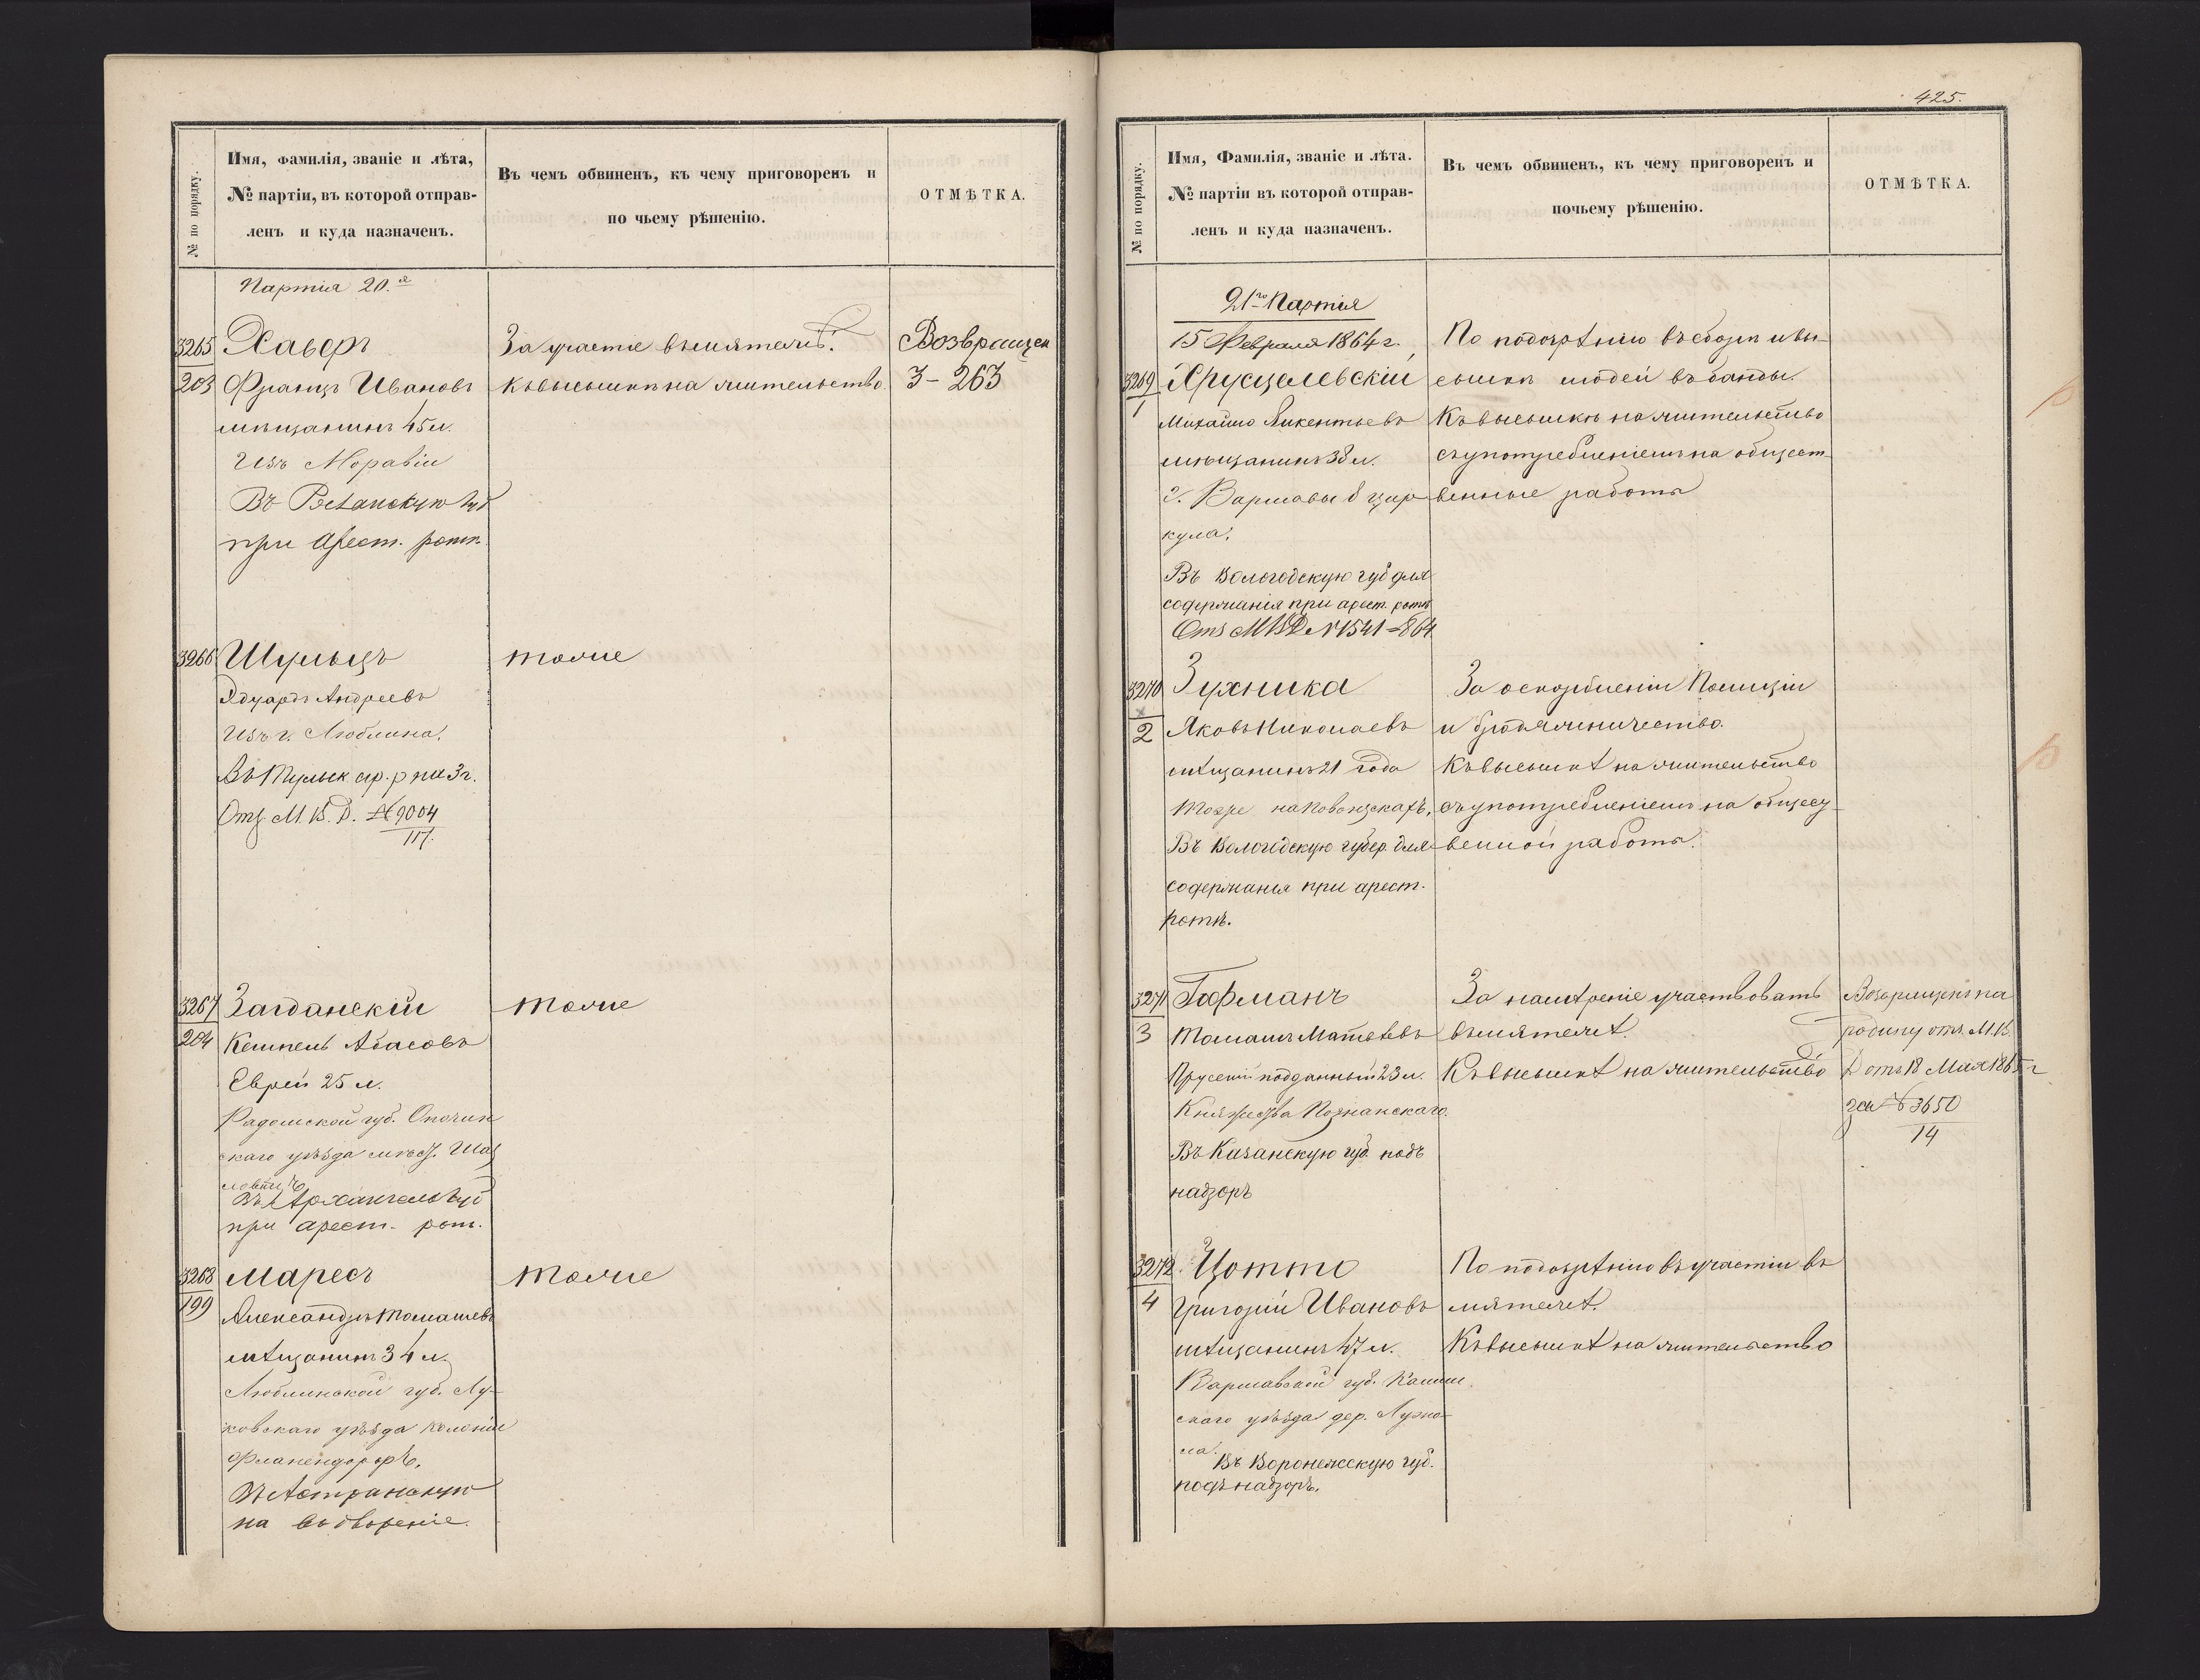 № по порядку.
Имя, Фамилія, званіе и лѣта,
№ партіи, въ которой отправ-
ленъ и куда назначенъ.
Въ чемъ обвиненъ, къ чему приговоренъ и
по чьему рѣшенію.
ОТМѢТКА.
Партія 20.я
3265
203
Хаберъ
Францъ Ивановъ
мѣщанинъ 45 л.
Изъ Моравіи
Въ Рязанскую губ
при Арест. ротѣ.
За участіе въ мятежѣ.
Къ высылкѣ на жительство.
Возвращен
3-263
3266
Шульцъ
Эдуардъ Андреевъ
Изъ г. Люблина.
Въ Тульск ар. р на 3 г.
Отз. М. В. Д. № 9004
117.
тоже
3267
204
Загданскій
Кемпель Абасовъ
Еврей 25 л.
Радомской губ. Опочин
скаго уѣзда мѣст.
Въ Архангель губ
при арест. рот.
тоже
3268
199
Маресъ
Александръ Томашевъ
мѣщанинъ 34 л.
Люблинской губ. Лу-
ковскаго уѣзда колоніи
Фланендорфъ.
Въ Астраханскую
на водвореніе.
тоже
425.
№ по порядку.
Имя, Фамилія, званіе и лѣта.
№ партіи въ которой отправ-
ленъ и куда назначенъ.
Въ чемъ обвиненъ, къ чему приговоренъ и
почьему рѣшенію.
ОТМѢТКА.
21го Партія
15 Февраля 1864 г.
3269
1
Хрусцелевскій
Михайло Викентьевъ
мѣщанинъ 38 л.
г. Варшавы 8 цир-
кула.
Въ Вологодскую губ для
содержанія при арест. ротѣ
Отз МВД № 1541-864
По подозрѣнію въ сборѣ и вы-
сылкѣ людей въ банды.
Къ высылкѣ на жительство
съ употребленіемъ на общест-
венные работы
3270
2
Зухника
Яковъ Николаевъ
мѣщанинъ 21 года
тоже на Повонзкахъ.
Въ Вологодскую губер. для
содержанія при арест.
ротѣ.
За оскорбленіи Полиціи
и бродяжничество.
Къ высылкѣ на жительство
съ употребленіемъ на общест-
венной работы.
3271
3
Гофманъ
Томашъ Матвѣевъ
Прусскій подданный 23 л.
Княжества Познанскаго.
Въ Казанскую губ. подъ
надзоръ
За намѣреніе участвовать
въ мятежѣ.
Къ высылкѣ на жительство
Возвращенъ на
родину отз. М. В.
Д отъ 18 Мая 1865 г
за № 3650
14
3272
4
Цотто
Григорій Ивановъ
мѣщанинъ 47 л.
Варшавской губ. Калиш-
скаго уѣзда дер.
Въ Воронежскую губ.
подъ надзоръ.
По подозрѣнію въ участіи въ
мятежѣ.
Къ высылкѣ на жительство
р
р